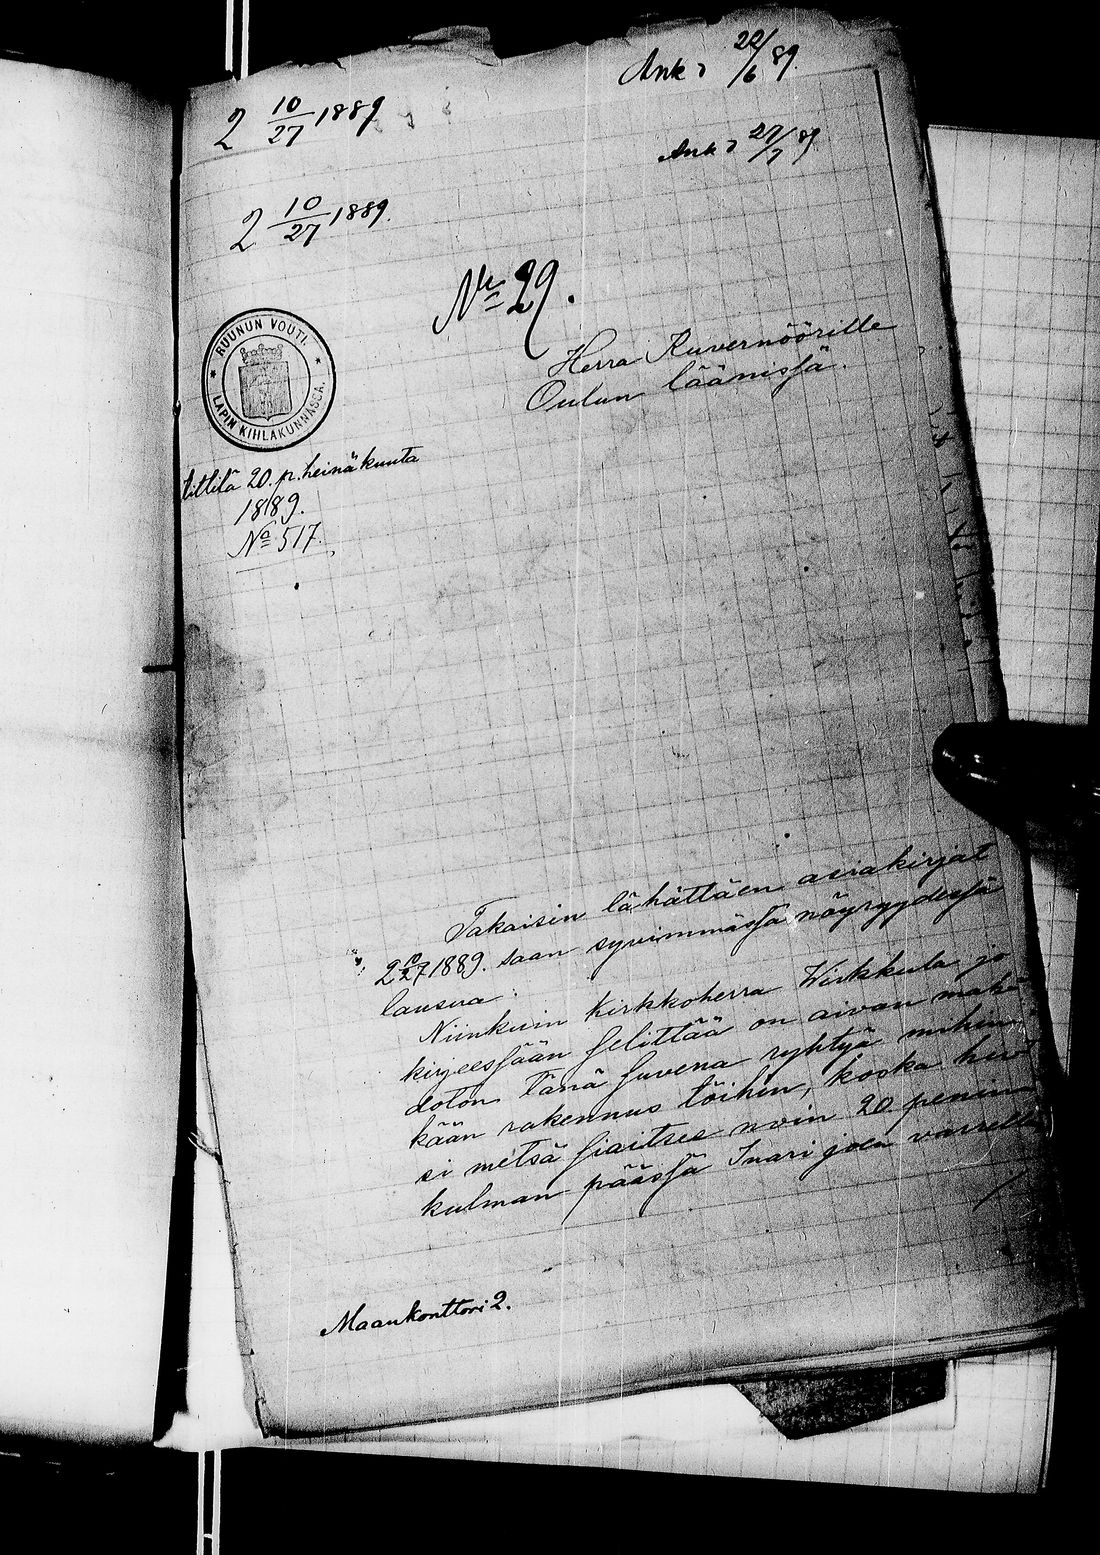 Ank d 22/6 89.
2 10/27 1889
Ank d 27/7 89
2 10/27 1889.
No 29.
Herra Kuvernöörille
Oulun läänissä.
RUUNUN VOUTI.
LAPIN KIHLAKUNNASSA.
kittilä 20. p. heinäkuuta
1889.
No 517.
Takaisin lähättäen asiakirjat
2 10/27 1889. saan syvimmässä nöyryydessä
lausua:
Niinkuin Kirkkoherra Wirkkula jo
kirjeessään selittää on aivan mahd
doton tänä suvena ryhtyä mihin
kään rakennus töihin, koska hir
si metsä siaitsee noin 20 penin
kulman päässä Inarijoen varrella
Maankonttori 2.